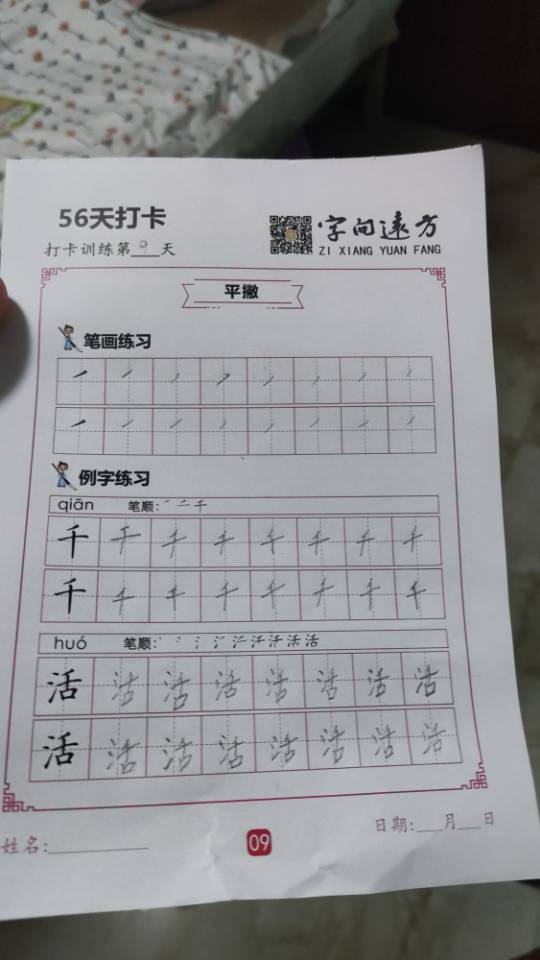 56天打卡
打卡训练第9天
字向遠方
ZI XIANG YUAN FANG
平撇
笔画练习
㇒ ㇒ ㇒ ㇒ ㇒ ㇒ ㇒ ㇒
㇒ ㇒ ㇒ ㇒ ㇒ ㇒ ㇒ ㇒
例字练习
qiān 笔顺: ㇒ 二 千
千 千 千 千 千 千 千 千
千 千 千 千 千 千 千 千
huó 笔顺:
活 活 活 活 活 活 活 活
活 活 活 活 活 活 活 活
姓名:
09
日期:___月___日